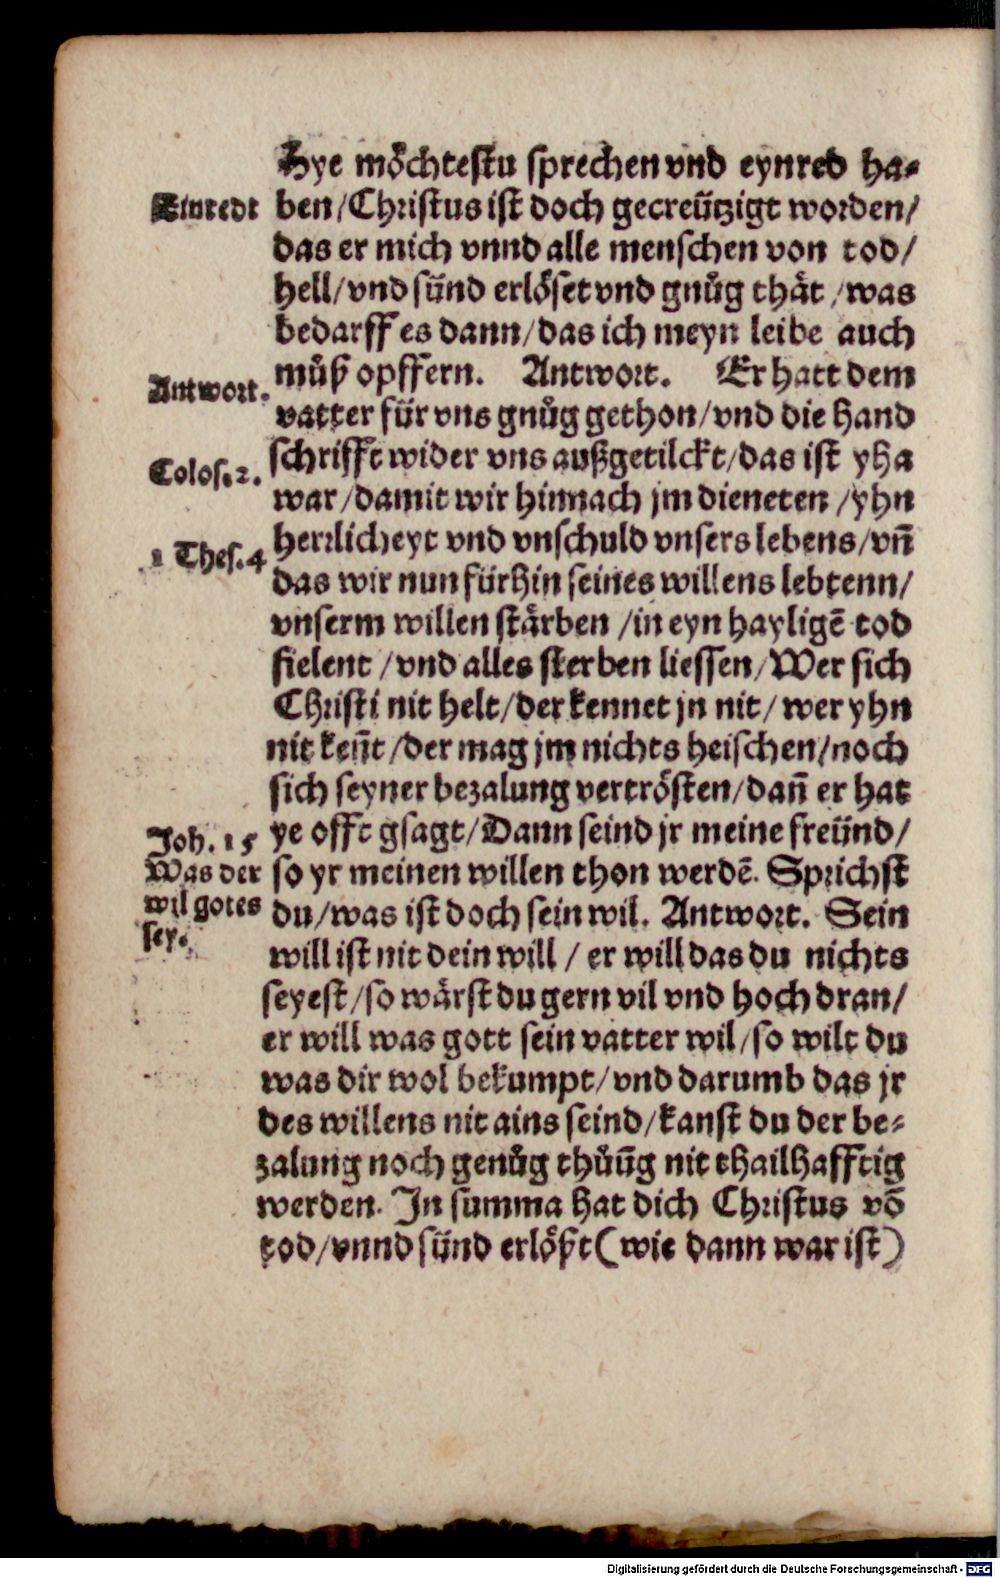 Hye möchtestu sprechen vnd eynred ha-
Einredt
ben/Christus ist doch gecreützigt worden/
das er mich vnnd alle menschen von tod/
hell/vnd sünd erlöset vnd gnůg thät/was
bedarff es dann/das ich meyn leibe auch
můß opffern. Antwort. Er hatt dem
Antwort.
vatter für vns gnůg gethon/vnd die hand
schrifft wider vns außgetilckt/das ist yha
Colos.2.
war/damit wir hinnach jm dieneten/yhn
herrlicheyt vnd vnschuld vnsers lebens/vñ
1 Thes.4
das wir nun fürhin seines willens lebtenn/
vnserm willen stärben/in eyn hayligē tod
fielent/vnd alles sterben liessen/Wer sich
Christi nit helt/der kennet jn nit/wer yhn
nit keñt/der mag jm nichts heischen/noch
sich seyner bezalung vertrösten/dañ er hat
ye offt gsagt/Dann seind jr meine freünd/
Joh. 15
so yr meinen willen thon werdē. Sprichst
Was der
du/was ist doch sein wil. Antwort. Sein
wil gotes
sey.
will ist nit dein will/er will das du nichts
seyest/so wärst du gern vil vnd hoch dran/
er will was gott sein vatter wil/so wilt du
was dir wol bekumpt/vnd darumb das jr
des willens nit ains seind/kanst du der be-
zalung noch genůg thůūg nit thailhafftig
werden. In summa hat dich Christus vō
tod/vnnd sünd erlößt(wie dann war ist)
Digitalisierung gefördert durch die Deutsche Forschungsgemeinschaft - DFG